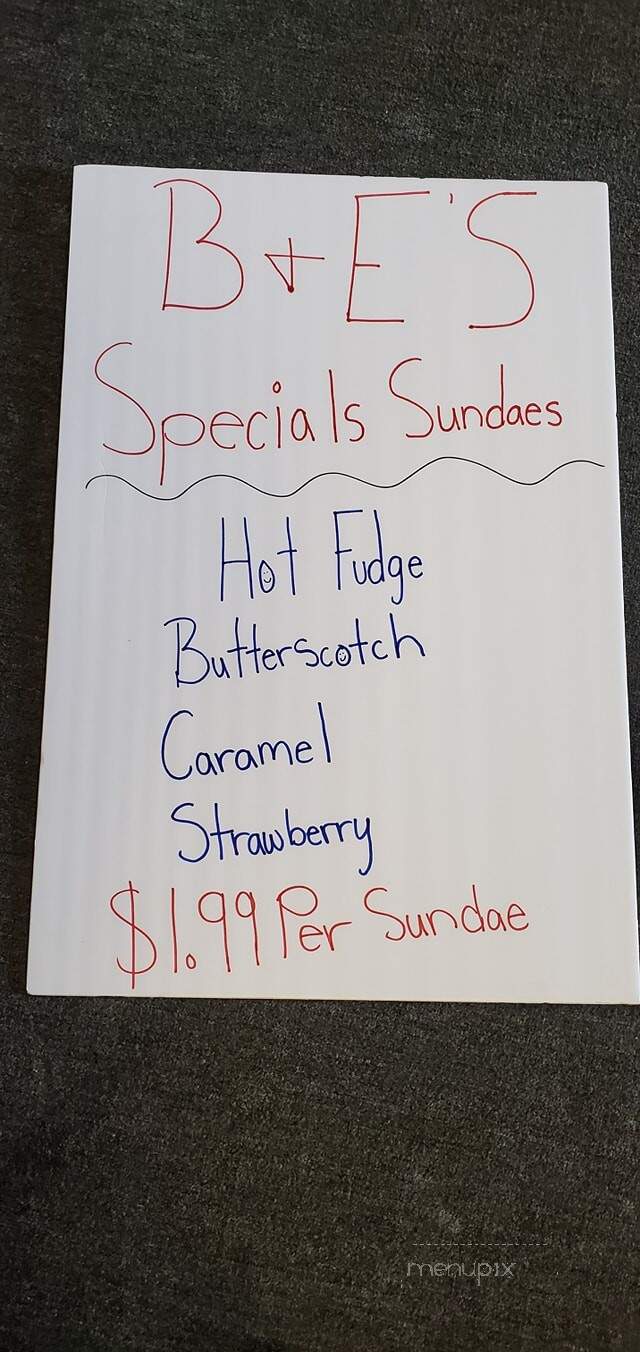 B+E'S
Specials Sundaes
Hot Fudge
Butterscotch
Caramel
Strawberry
$1.99 Per Sundae
menupix